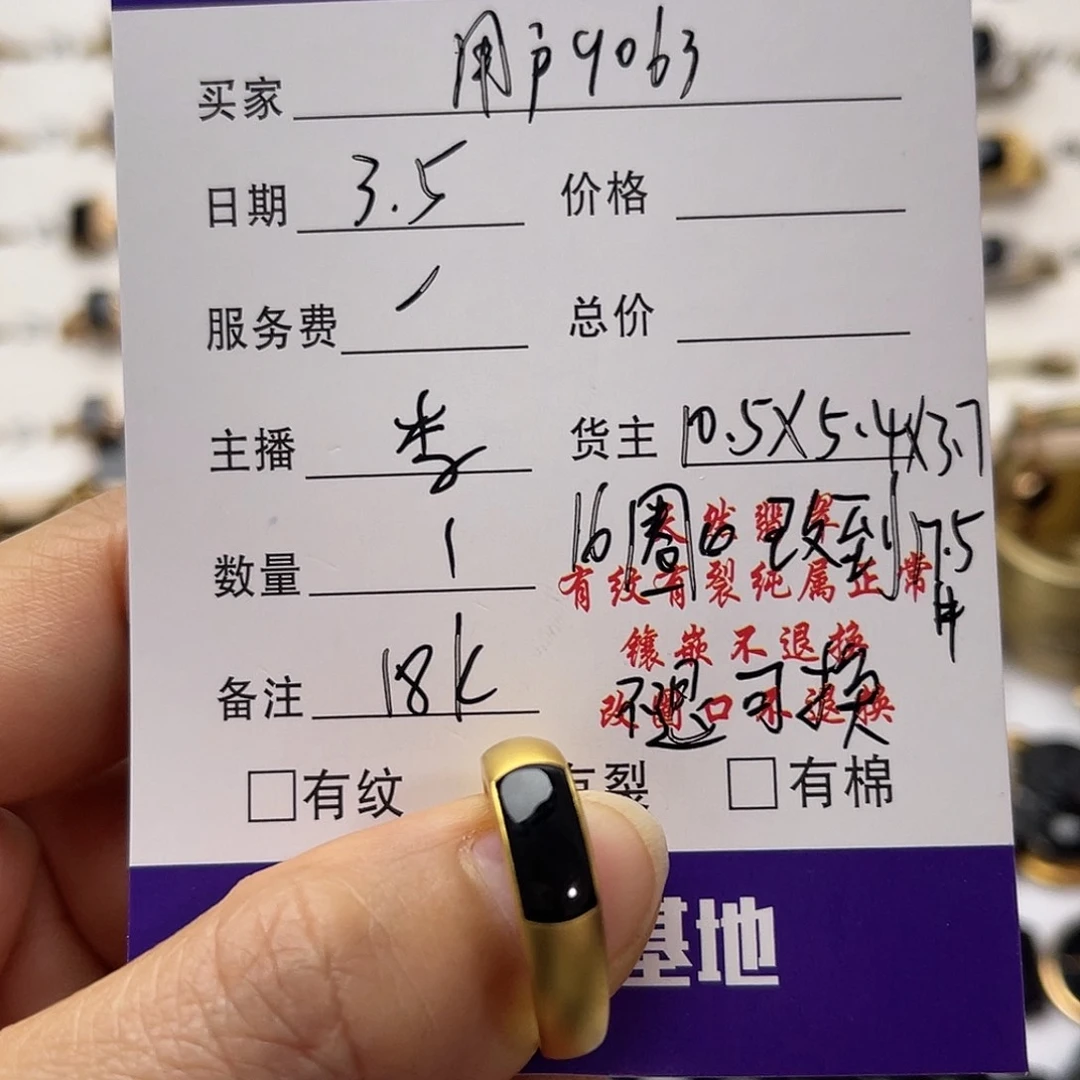 买家 用户9063
日期 3.5 价格
服务费 总价
主播 李 货主 10.5X5.4X3.7
数量 1 16圈口改到17.5
天然翡翠
有纹有裂纯属正常
镶嵌不退换
备注 18K 不退可换
改圈口不退换
□有纹 有裂 □有棉
基地